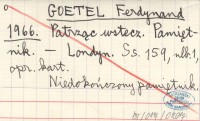 GOETEL Ferdynand
1966. Patrząc wstecz. Pamięt-
nik. — Londyn. Ss. 159, nlb.1,
opr. kart.
Niedokończony pamiętnik.